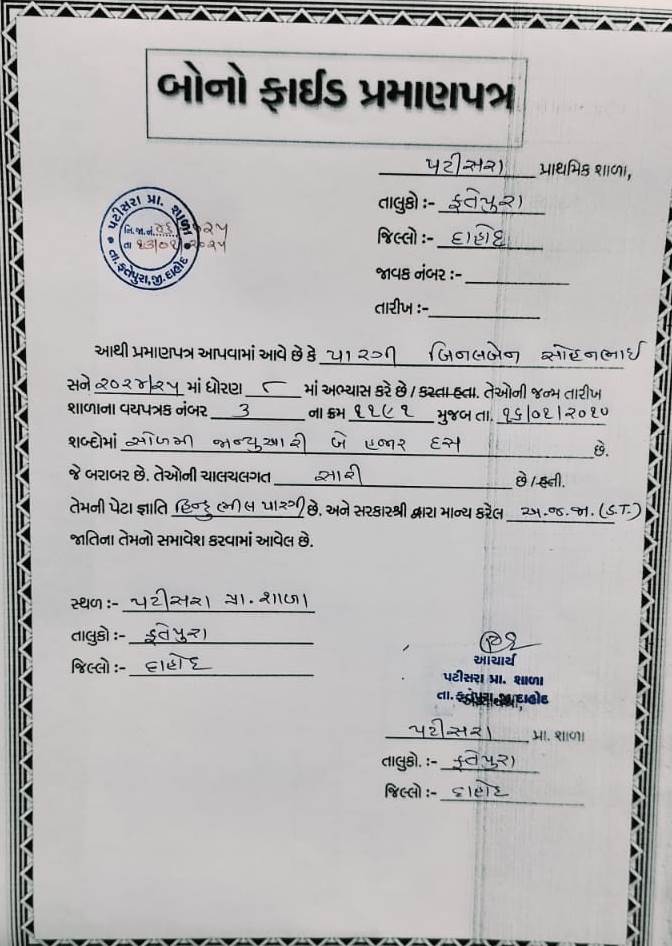 બોનો ફાઈડ પ્રમાણપત્ર
પટીસરા પ્રાથમિક શાળા,
તાલુકો :- ફતેપુરા
જિલ્લો :- દાહોદ
જાવક નંબર :-
તારીખ :-
પટીસરા પ્રા. શાળા
તા. ફતેપુરા, જી. દાહોદ
આથી પ્રમાણપત્ર આપવામાં આવે છે કે પારગી બિનલબેન સોહનભાઈ
સને ૨૦૨૪/૨૫ માં ધોરણ ૮ માં અભ્યાસ કરે છે / કરતા હતા. તેઓની જન્મ તારીખ
શાળાના વયપત્રક નંબર 3 ના ક્રમ ૧૧૯૧ મુજબ તા. ૧૬/૦૧/૨૦૧૦
શબ્દોમાં સોળમી જાન્યુઆરી બે હજાર દસ છે.
જે બરાબર છે. તેઓની ચાલચલગત સારી છે / હતી.
તેમની પેટા જ્ઞાતિ હિન્દુ ભીલ પારગી છે. અને સરકારશ્રી દ્વારા માન્ય કરેલ અ.જ.જા. (S.T.)
જાતિના તેમનો સમાવેશ કરવામાં આવેલ છે.
સ્થળ :- પટીસરા પ્રા. શાળા
તાલુકો :- ફતેપુરા
જિલ્લો :- દાહોદ
આચાર્ય
પટીસરા પ્રા. શાળા
તા. ફતેપુરા, જી. દાહોદ
પટીસરા પ્રા. શાળા
તાલુકો. :- ફતેપુરા
જિલ્લો :- દાહોદ